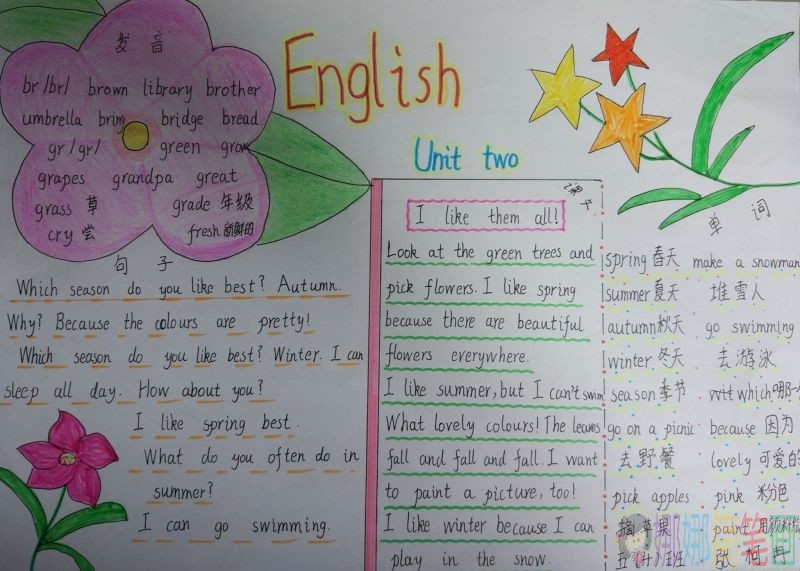 English
Unit two
发音
br /br/ brown library brother
umbrella bring bridge bread
gr /gr/ green grow
grapes grandpa great
grass 草 grade 年级
cry 尝 fresh 新鲜的
句子
Which season do you like best? Autumn.
Why? Because the colours are pretty!
Which season do you like best? Winter. I can
sleep all day. How about you?
I like spring best.
What do you often do in
summer?
I can go swimming.
课文
I like them all!
Look at the green trees and
pick flowers. I like spring
because there are beautiful
flowers everywhere.
I like summer, but I can't swim
What lovely colours! The leaves
fall and fall and fall. I want
to paint a picture, too!
I like winter because I can
play in the snow.
单词
spring 春天 make a snowman
summer 夏天 堆雪人
autumn 秋天 go swimming
winter 冬天 去游泳
season 季节 which 哪一
go on a picnic because 因为
去野餐 lovely 可爱的
pick apples pink 粉色
摘苹果 paint
五(十)班 张柯冉